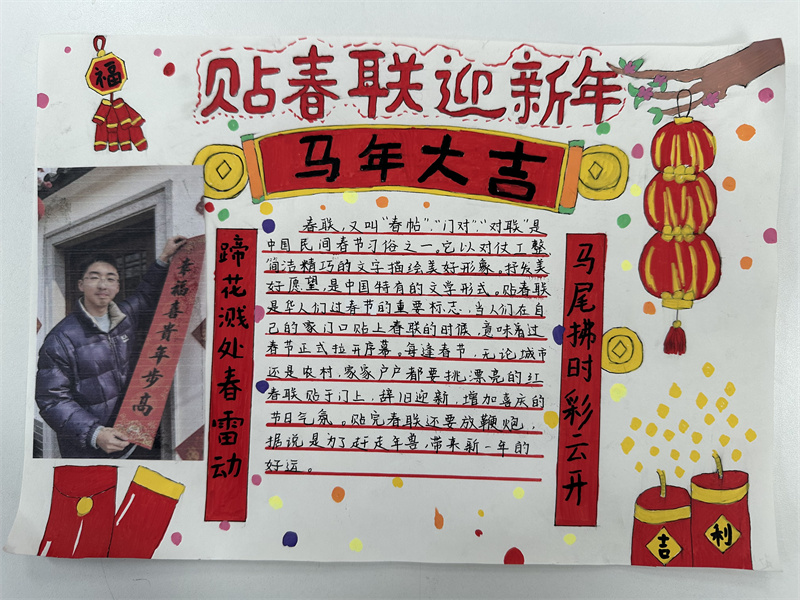 福
贴春联迎新年
马年大吉
春联,又叫"春帖"、"门对"、"对联"是
中国民间春节习俗之一。它以对仗工整
简洁精巧的文字描绘美好形象。抒发美
好愿望,是中国特有的文学形式。贴春联
是华人们过春节的重要标志,当人们在自
己的家门口贴上春联的时候,意味着过
春节正式拉开序幕。每逢春节,无论城市
还是农村,家家户户都要挑漂亮的红
春联贴于门上,辞旧迎新,增加喜庆的
节日气氛。贴完春联还要放鞭炮,
据说是为了赶走年兽,带来新一年的
好运。
蹄花溅处春雷动
马尾拂时彩云开
幸福喜贵年步高
吉
利